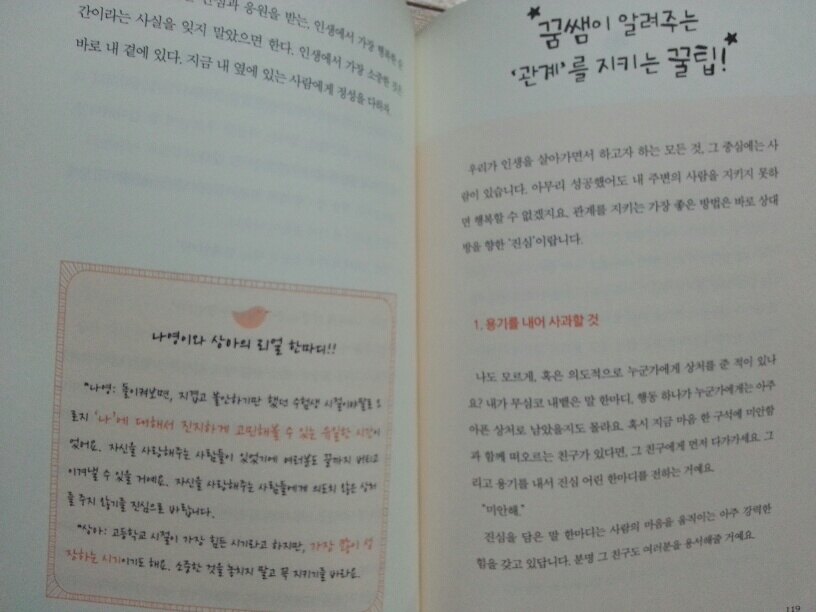 진심과 응원을 받는, 인생에서 가장 행복한 순
간이라는 사실을 잊지 말았으면 한다. 인생에서 가장 소중한 것은
바로 내 곁에 있다. 지금 내 옆에 있는 사람에게 정성을 다하자.
나영이와 상아의 리얼 한마디!!
"나영: 돌이켜보면, 지겹고 불안하기만 했던 수험생 시절이야말로 오
로지 '나'에 대해서 진지하게 고민해볼 수 있는 유일한 시간이
었어요. 자신을 사랑해주는 사람들이 있었기에 여러분도 끝까지 버티고
이겨낼 수 있을 거예요. 자신을 사랑해주는 사람들에게 의도치 않은 상처
를 주지 않기를 진심으로 바랍니다.
"상아: 고등학교 시절이 가장 힘든 시기라고 하지만, 가장 많이 성
장하는 시기이기도 해요. 소중한 것을 놓치지 말고 꼭 지키기를 바라요.
꿈쌤이 알려주는
'관계'를 지키는 꿀팁!
우리가 인생을 살아가면서 하고자 하는 모든 것, 그 중심에는 사
람이 있습니다. 아무리 성공했어도 내 주변의 사람을 지키지 못하
면 행복할 수 없겠지요. 관계를 지키는 가장 좋은 방법은 바로 상대
방을 향한 '진심'이랍니다.
1. 용기를 내어 사과할 것
나도 모르게, 혹은 의도적으로 누군가에게 상처를 준 적이 있나
요? 내가 무심코 내뱉은 말 한마디, 행동 하나가 누군가에게는 아주
아픈 상처로 남았을지도 몰라요. 혹시 지금 마음 한 구석에 미안함
과 함께 떠오르는 친구가 있다면, 그 친구에게 먼저 다가가세요. 그
리고 용기를 내서 진심 어린 한마디를 전하는 거예요.
"미안해."
진심을 담은 말 한마디는 사람의 마음을 움직이는 아주 강력한
힘을 갖고 있답니다. 분명 그 친구도 여러분을 용서해줄 거예요.
119